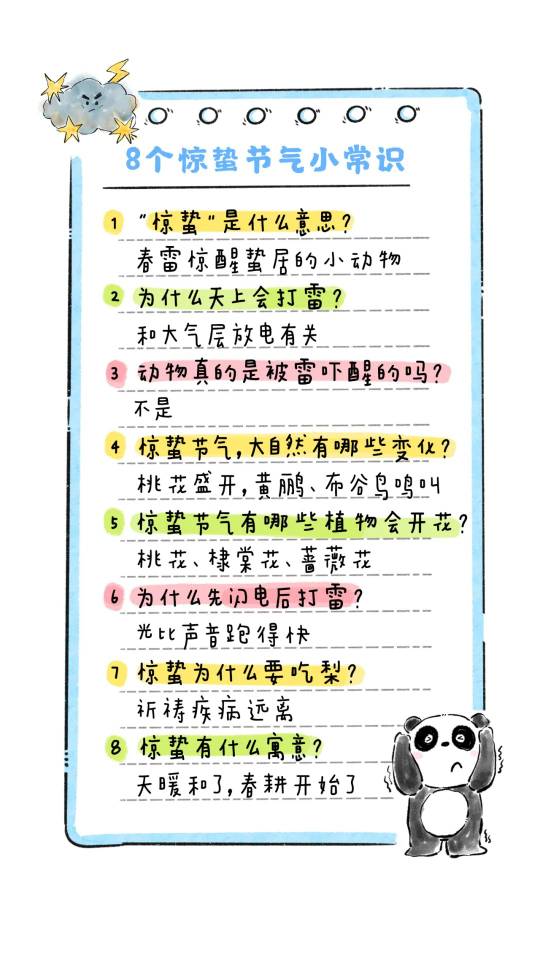 8个惊蛰节气小常识
1 "惊蛰"是什么意思?
春雷惊醒蛰居的小动物
2 为什么天上会打雷?
和大气层放电有关
3 动物真的是被雷吓醒的吗?
不是
4 惊蛰节气,大自然有哪些变化?
桃花盛开,黄鹂、布谷鸟鸣叫
5 惊蛰节气有哪些植物会开花?
桃花、棣棠花、蔷薇花
6 为什么先闪电后打雷?
光比声音跑得快
7 惊蛰为什么要吃梨?
祈祷疾病远离
8 惊蛰有什么寓意?
天暖和了,春耕开始了